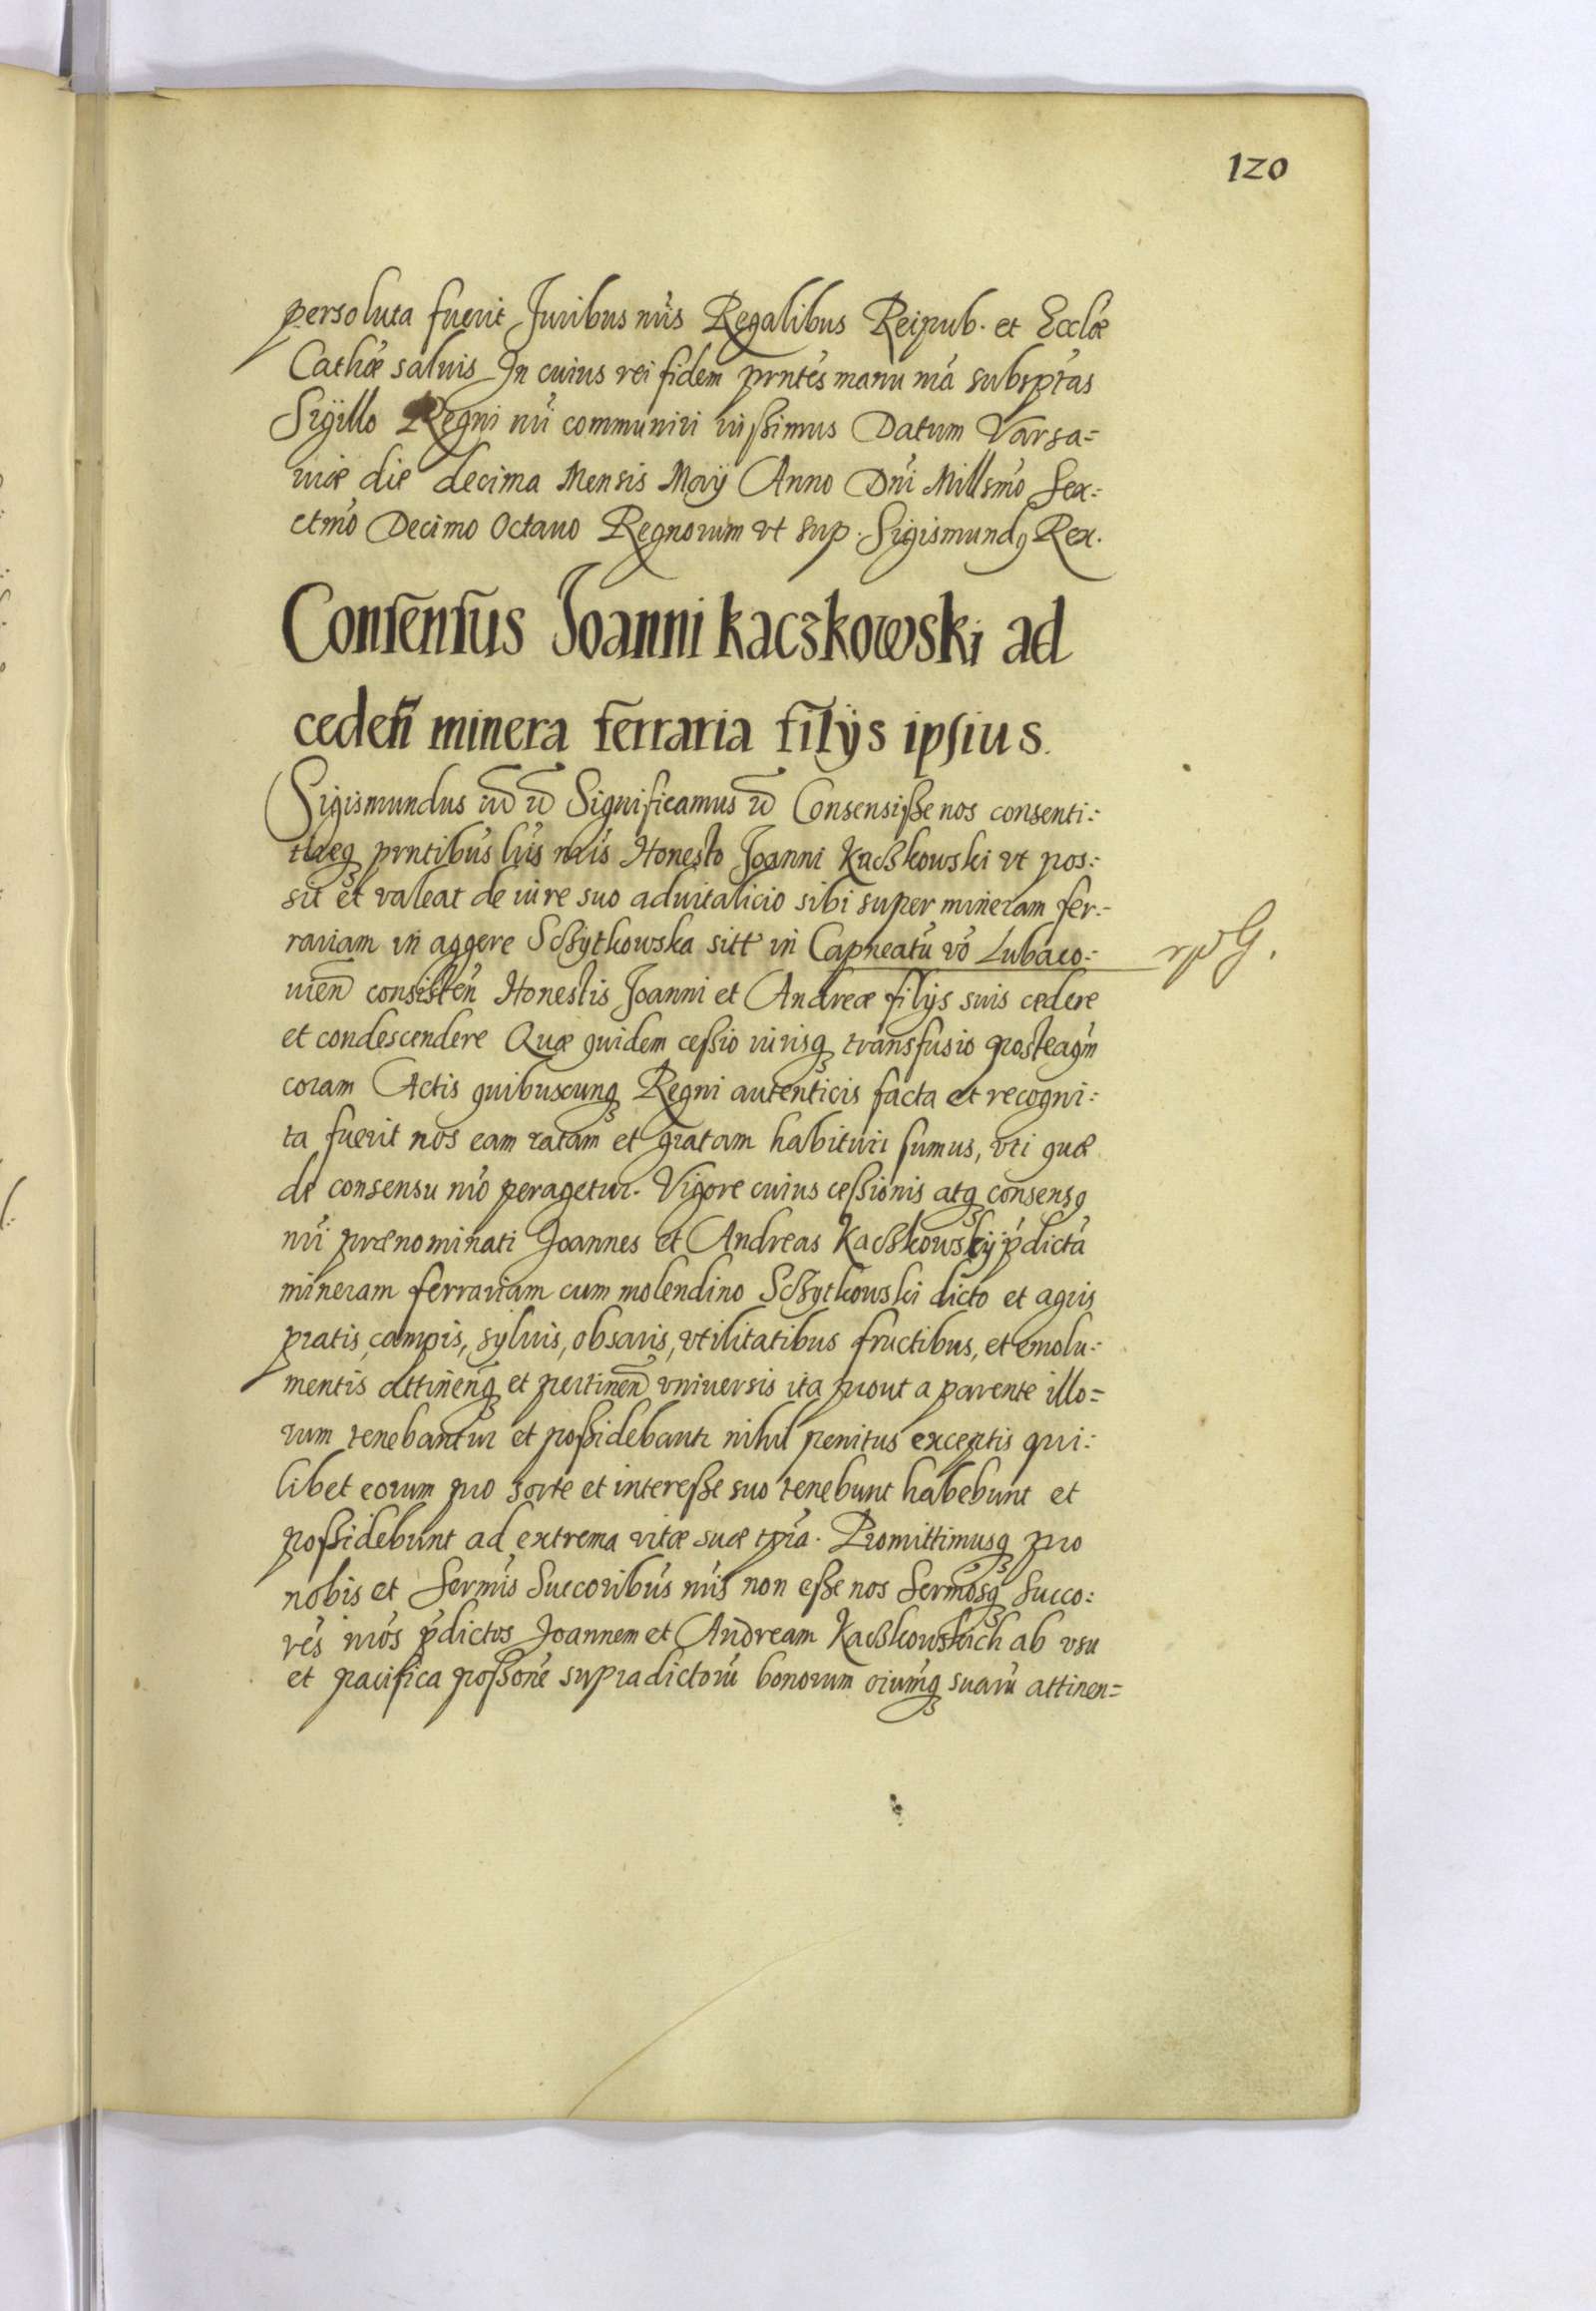 120
persoluta fuerit Juribus nr̃is Regalibus Reipub. et Eccl̃æ
Cathõe saluis In cuius rei fidem prñtes manu nr̃a subsptas
Sigillo Regni nr̃i communiri iussimus Datum Varsa=
uiæ die decima Mensis Maÿ Anno Dñi Millsm̃o Sex:
ctmõ Decimo Octauo Regnorum vt sup. Sigismundꝯ Rex.
Consensus Joanni Kaczkowski ad
cedeñ minera ferraria filÿs ipsius.
Sigismundus Significamus Consensisse nos consenti:
reqꝫ prñtibus lr̃is nr̃is Honesto Joanni Kaczkowski vt pos:
sit et valeat de iure suo aduitalicio sibi super mineram fer:
rariam in aggere Sczytkowska sitt in Capneatũ vo Lubaco:
uieñ consisteñ Honestis Joanni et Andreæ filÿs suis cedere
et condescendere Quæ quidem cessio iurisqꝫ transfusio posteaqm̃
coram Actis quibuscunqꝫ Regni autenticis facta et recogni:
ta fuerit nos eam ratam et gratam habituri sumus, vti quæ
de consensu nr̃o peragetur. Vigore cuius cessionis atqꝫ consensꝯ
nr̃i prænominati Joannes et Andreas Kaczkowskÿ p̃dictã
mineram ferrariam cum molendino Sczytkowski dicto et agris
pratis, campis, syluis, obsauis, vtilitatibus fructibus, et emolu:
mentis attineñqꝫ et pertineñ vniuersis ita prout a parente illo=
rum tenebantur et possidebantr nihil penitus exceptis qui:
libet eorum pro sorte et interesse suo tenebunt habebunt et
possidebunt ad extrema vitæ suæ tp̃ra. Promittimusqꝫ pro
nobis et Serm̃is Succoribus nr̃is non esse nos Serm̃osqꝫ Succo:
res nr̃os p̃dictos Joannem et Andream Kaczkowskich ab vsu
et pacifica possone supradictorũ bonorum oiumqꝫ suarũ attinen=